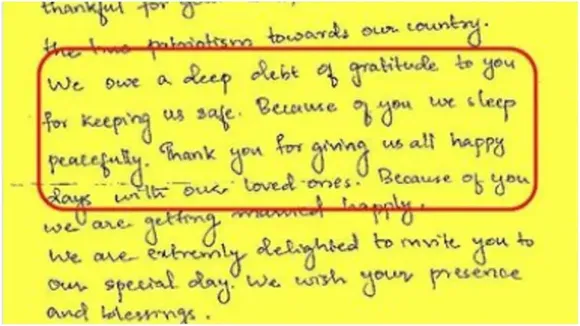 thankful for your
the true patriotism towards our country.
We owe a deep debt of gratitude to you
for keeping us safe. Because of you we sleep
peacefully. Thank you for giving us all happy
days with our loved ones. Because of you
we are getting married happly.
We are extremely delighted to invite you to
our special day. We wish your presence
and blessings.